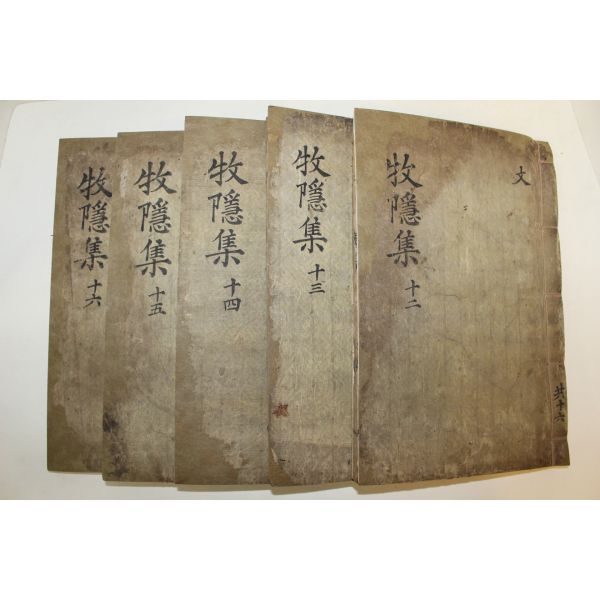 牧隱集 十二
文
共十六
牧隱集 十三
牧隱集 十四
牧隱集 十五
牧隱集 十六